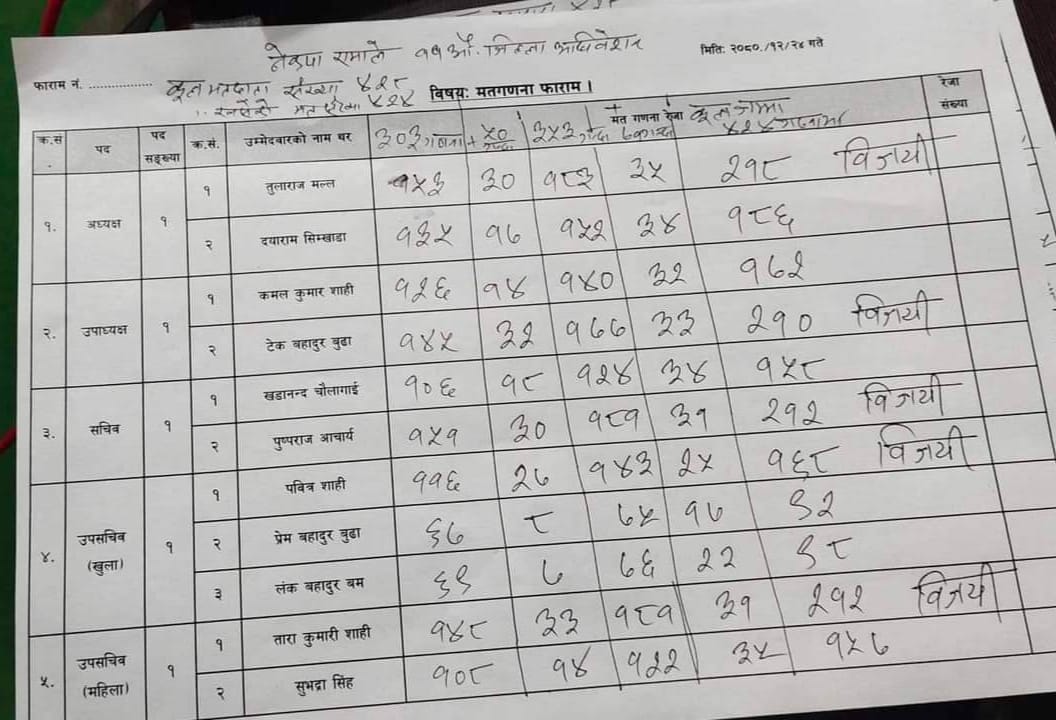 नेकपा एमाले ११औं जिल्ला अधिवेशन
मिति: २०८०/१२/२४ गते
फाराम नं. ................ कूल मतदाता संख्या ४२८
मत संख्या ४२४ विषय: मतगणना फाराम ।
क.सं. पद पद सङ्ख्या क.सं. उम्मेदवारको नाम थर ३०३ गणना + ५० ३५३ मत गणना रेजा कूल जम्मा ४२४ रेजा संख्या
१. अध्यक्ष १ १ तुलाराज मल्ल १५३ ३० १८३ ३५ २१८ विजयी
२ दयाराम सिम्खाडा १३५ १७ १५२ ३४ १८६
२. उपाध्यक्ष १ १ कमल कुमार शाही १२६ १४ १४० ३२ १७२
२ टेक बहादुर बुढा १४५ ३२ १७७ ३३ २१० विजयी
३. सचिव १ १ खडानन्द चौलागाई १०६ १८ १२४ ३४ १५८
२ पुष्पराज आचार्य १५१ ३० १८१ ३१ २१२ विजयी
४. उपसचिव (खुला) १ १ पवित्र शाही ११६ २७ १४३ २५ १६८ विजयी
२ प्रेम बहादुर बुढा ६७ ८ ७५ १७ ९२
३ लंक बहादुर बम ६९ ७ ७६ २२ ९८
५. उपसचिव (महिला) १ १ तारा कुमारी शाही १४८ ३३ १८१ ३१ २१२ विजयी
२ सुभद्रा सिंह १०८ १४ १२२ ३५ १५७